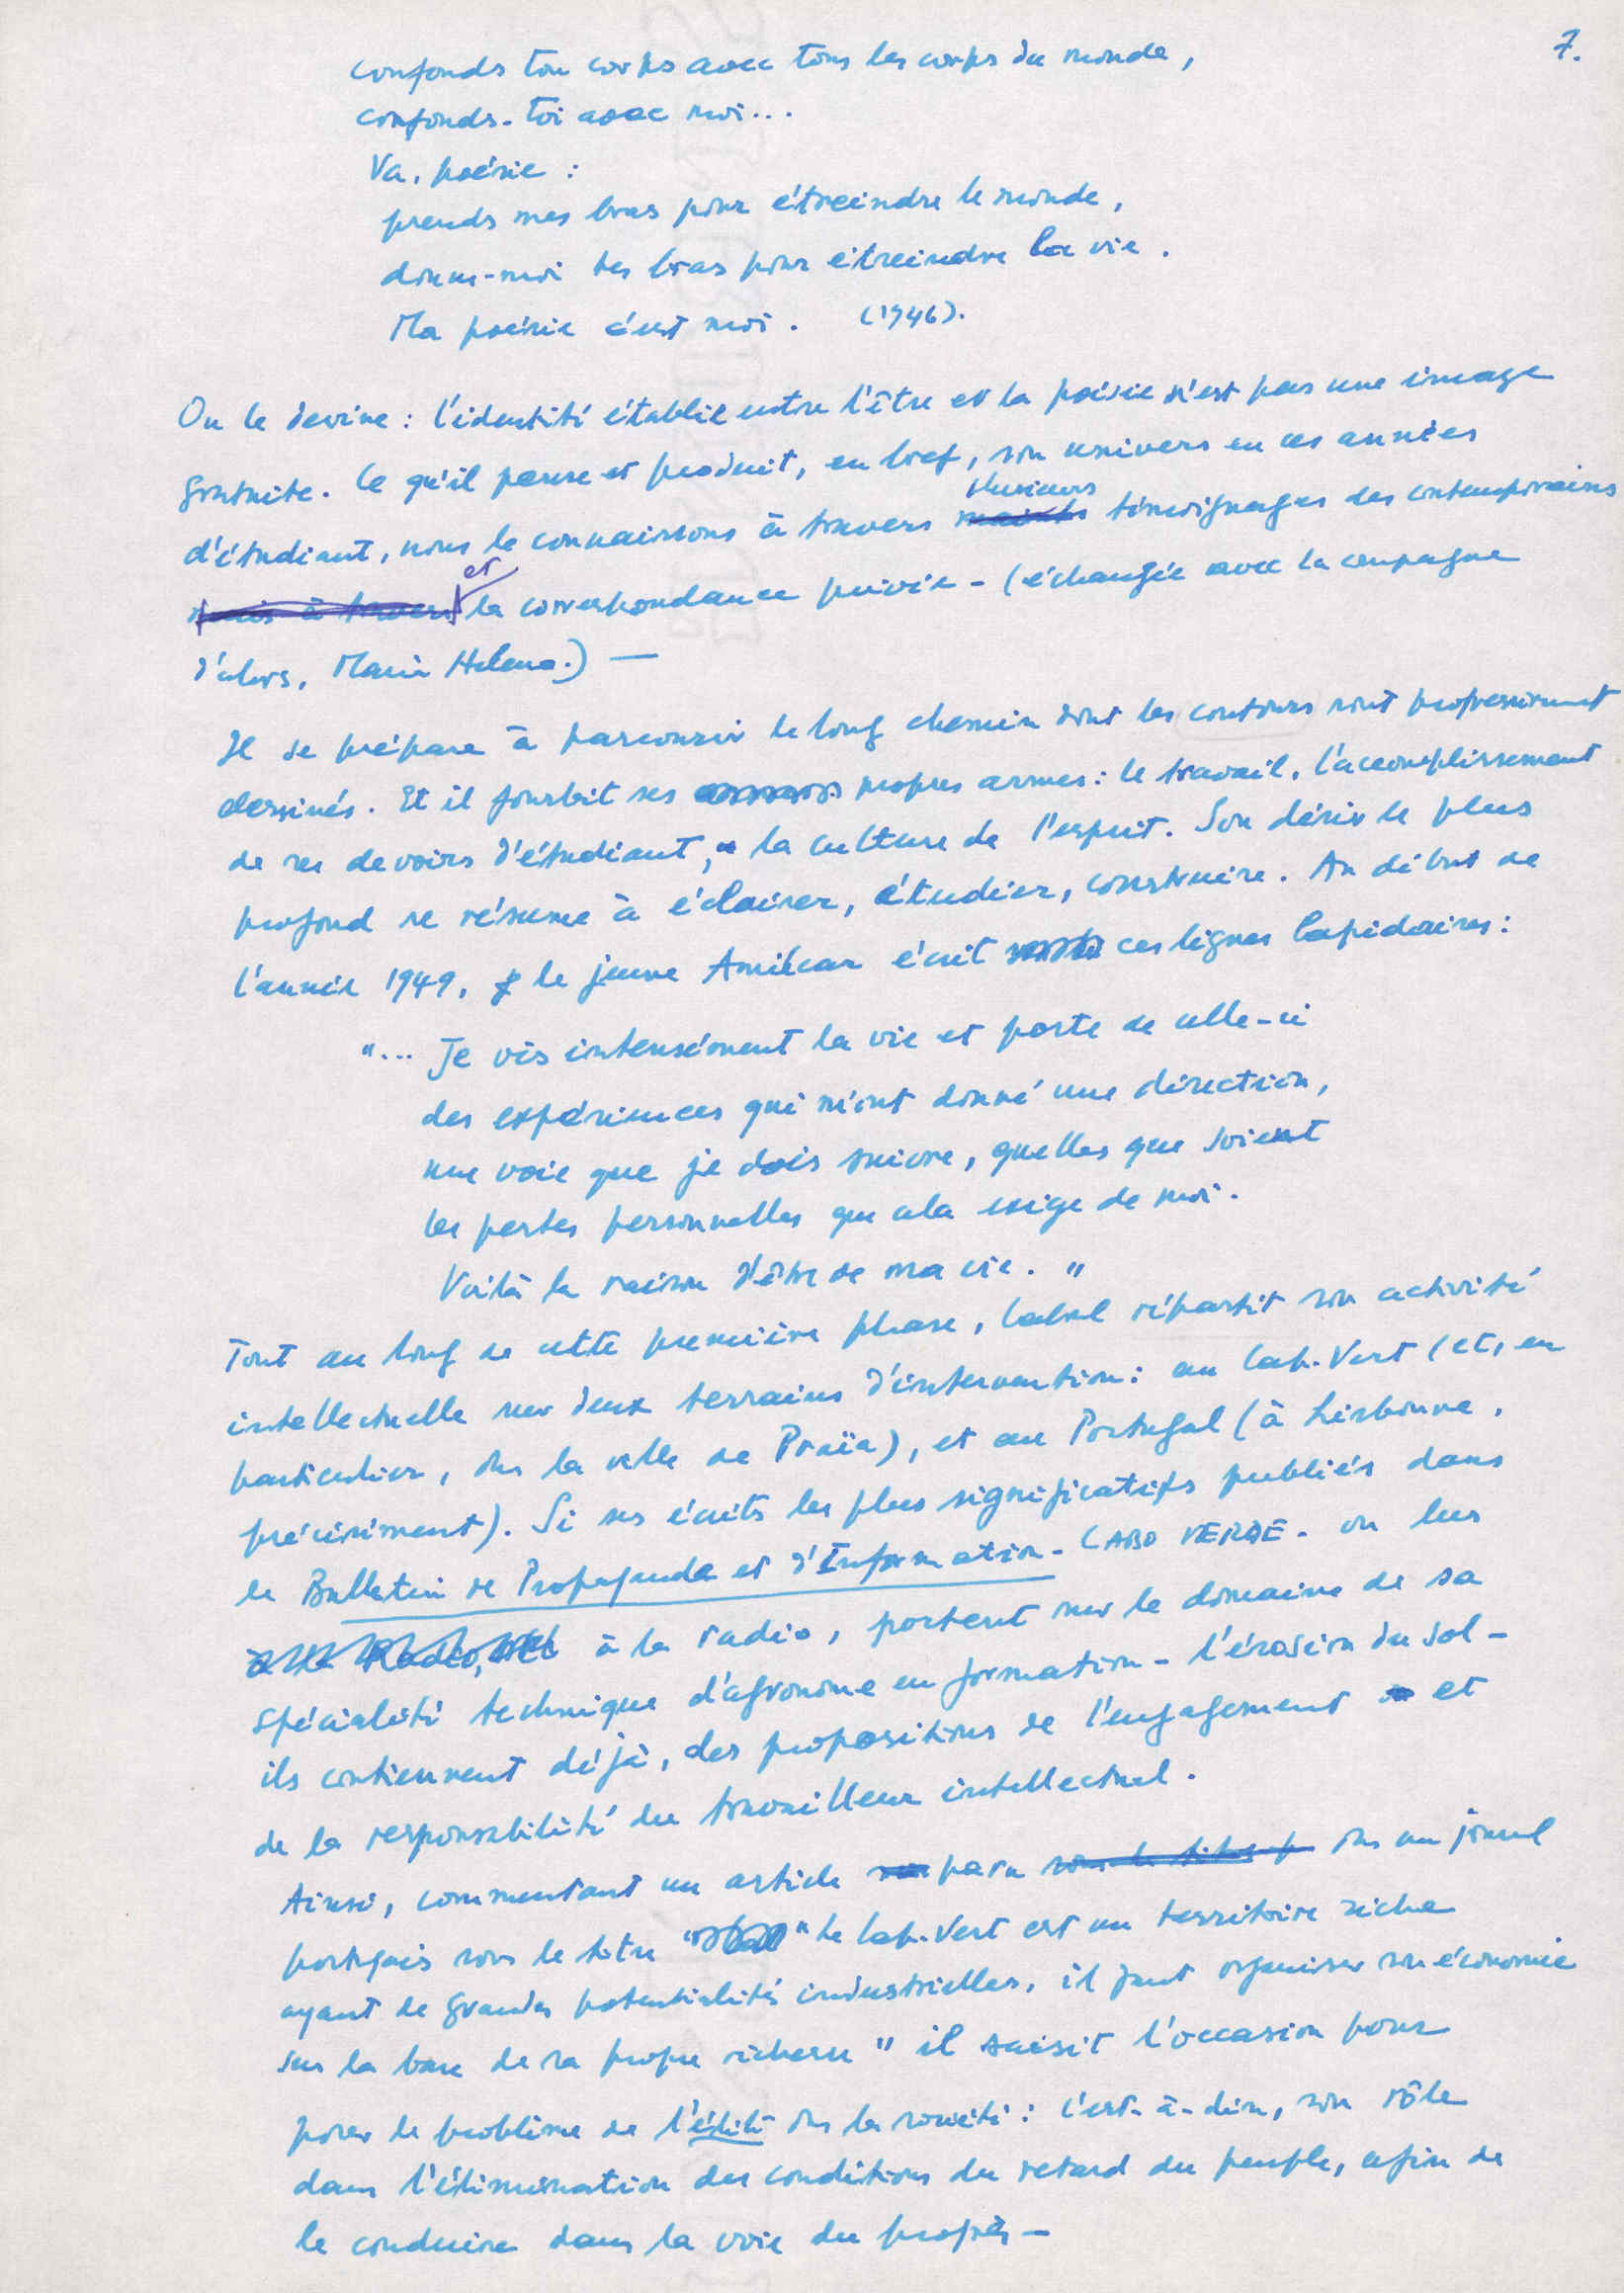 7.
confonds ton corps avec tous les corps du monde,
confonds-toi avec moi...
Va, poésie :
prends mes bras pour étreindre le monde,
donne-moi tes bras pour étreindre la vie.
Ma poésie c'est moi. (1946).
On le devine : l'identité établie entre l'être et la poésie n'est pas une image
gratuite. Ce qu'il pense et produit, en bref, son univers en ces années
d'étudiant, nous le connaissons à travers maints plusieurs témoignages des contemporains
mais à travers et la correspondance privée - (échangée avec la compagne
d'alors, Maria Helena.) —
Il se prépare à parcourir le long chemin dont les contours sont progressivement
dessinés. Et il fourbit ses propres armes : le travail, l'accomplissement
de ses devoirs d'étudiant, la culture de l'esprit. Son désir le plus
profond se résume à éclairer, étudier, construire. Au début de
l'année 1949, le jeune Amilcar écrit ces lignes lapidaires :
"... Je vis intensément la vie et porte de celle-ci
des expériences qui m'ont donné une direction,
une voie que je dois suivre, quelles que soient
les pertes personnelles que cela exige de moi.
Voilà la raison d'être de ma vie. "
Tout au long de cette première phase, Cabral répartit son activité
intellectuelle sur deux terrains d'intervention : au Cap-Vert (et, en
particulier, ds la ville de Praïa), et au Portugal (à Lisbonne,
précisément). Si ses écrits les plus significatifs publiés dans
le Bulletin de Propaganda et d'Information - CABO VERDE - ou lus
à la Radio, à la radio, portent sur le domaine de sa
spécialité technique d'agronome en formation - l'érosion du sol -
ils contiennent déjà, des propositions de l'engagement et
de la responsabilité du travailleur intellectuel.
Ainsi, commentant un article paru sous le titre ds un journal
portugais sous le titre " "le Cap-Vert est un territoire riche
ayant de grandes potentialités industrielles, il faut organiser son économie
sur la base de sa propre richesse " il saisit l'occasion pour
poser le problème de l'élite ds la société : c'est-à-dire, son rôle
dans l'élimination des conditions du retard du peuple, afin de
le conduire dans la voie du progrès -